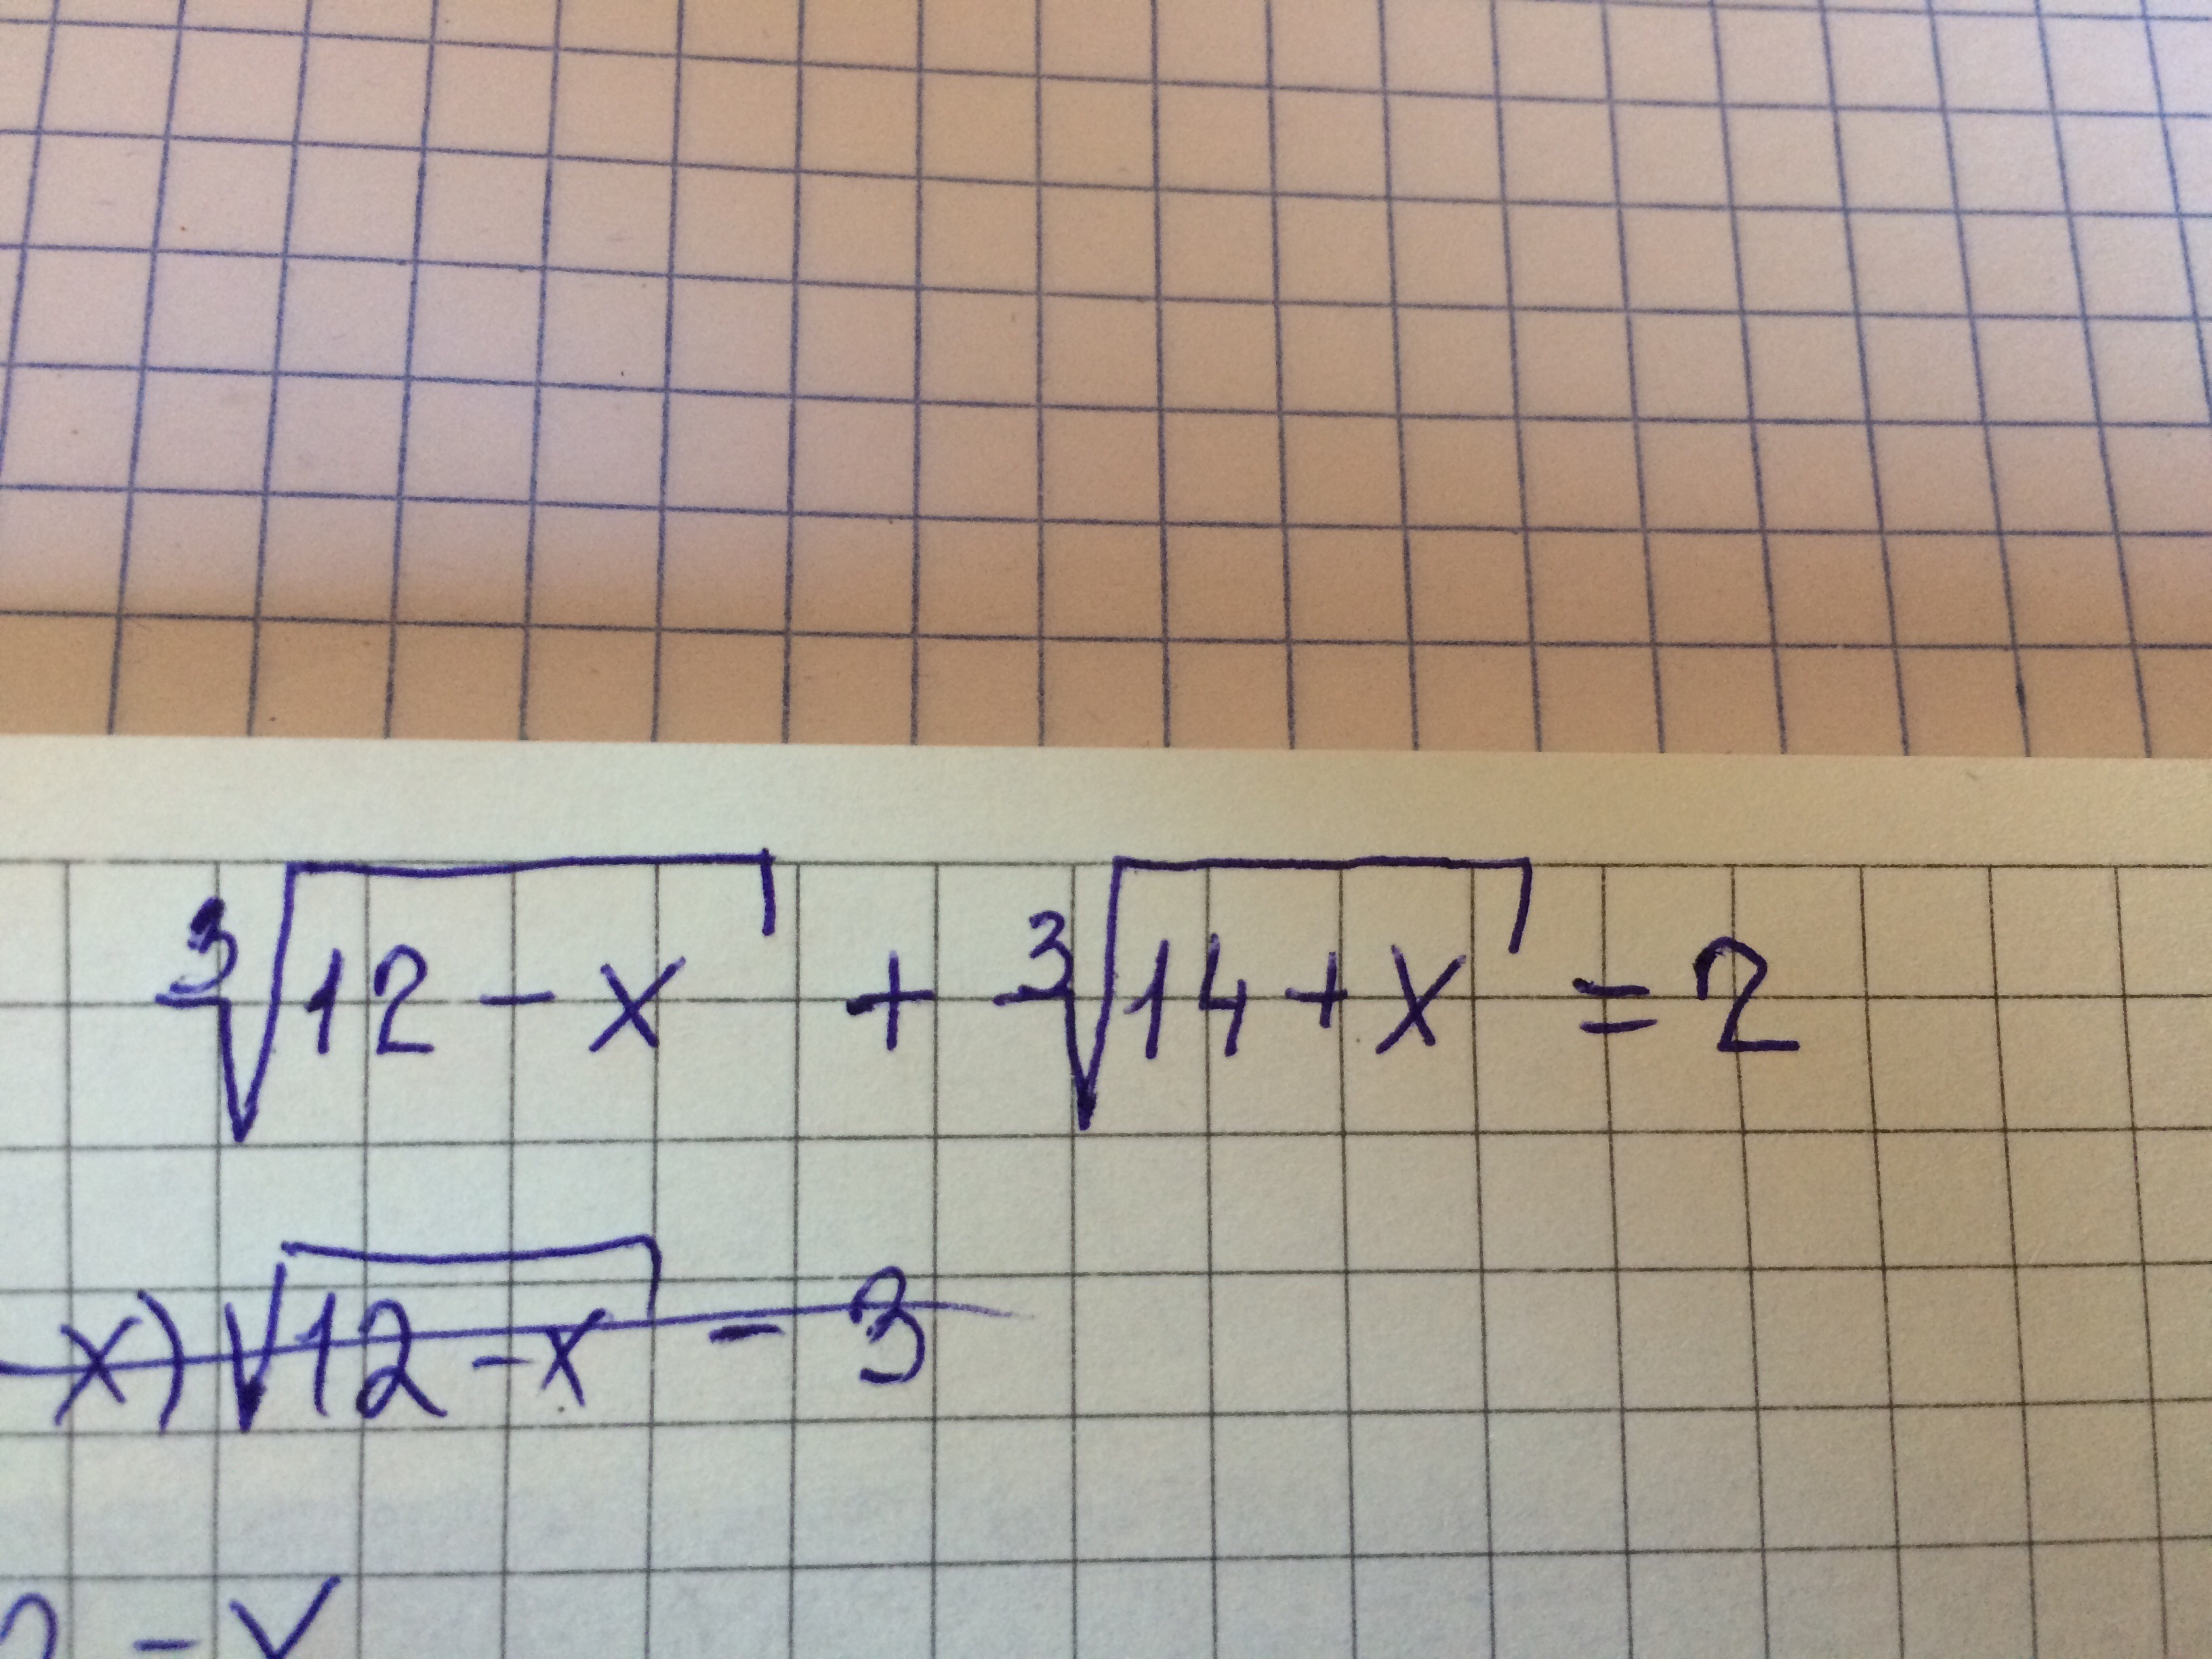 ∛(12 - x) + ∛(14 + x) = 2
- x) √(12 - x) - 3
- x